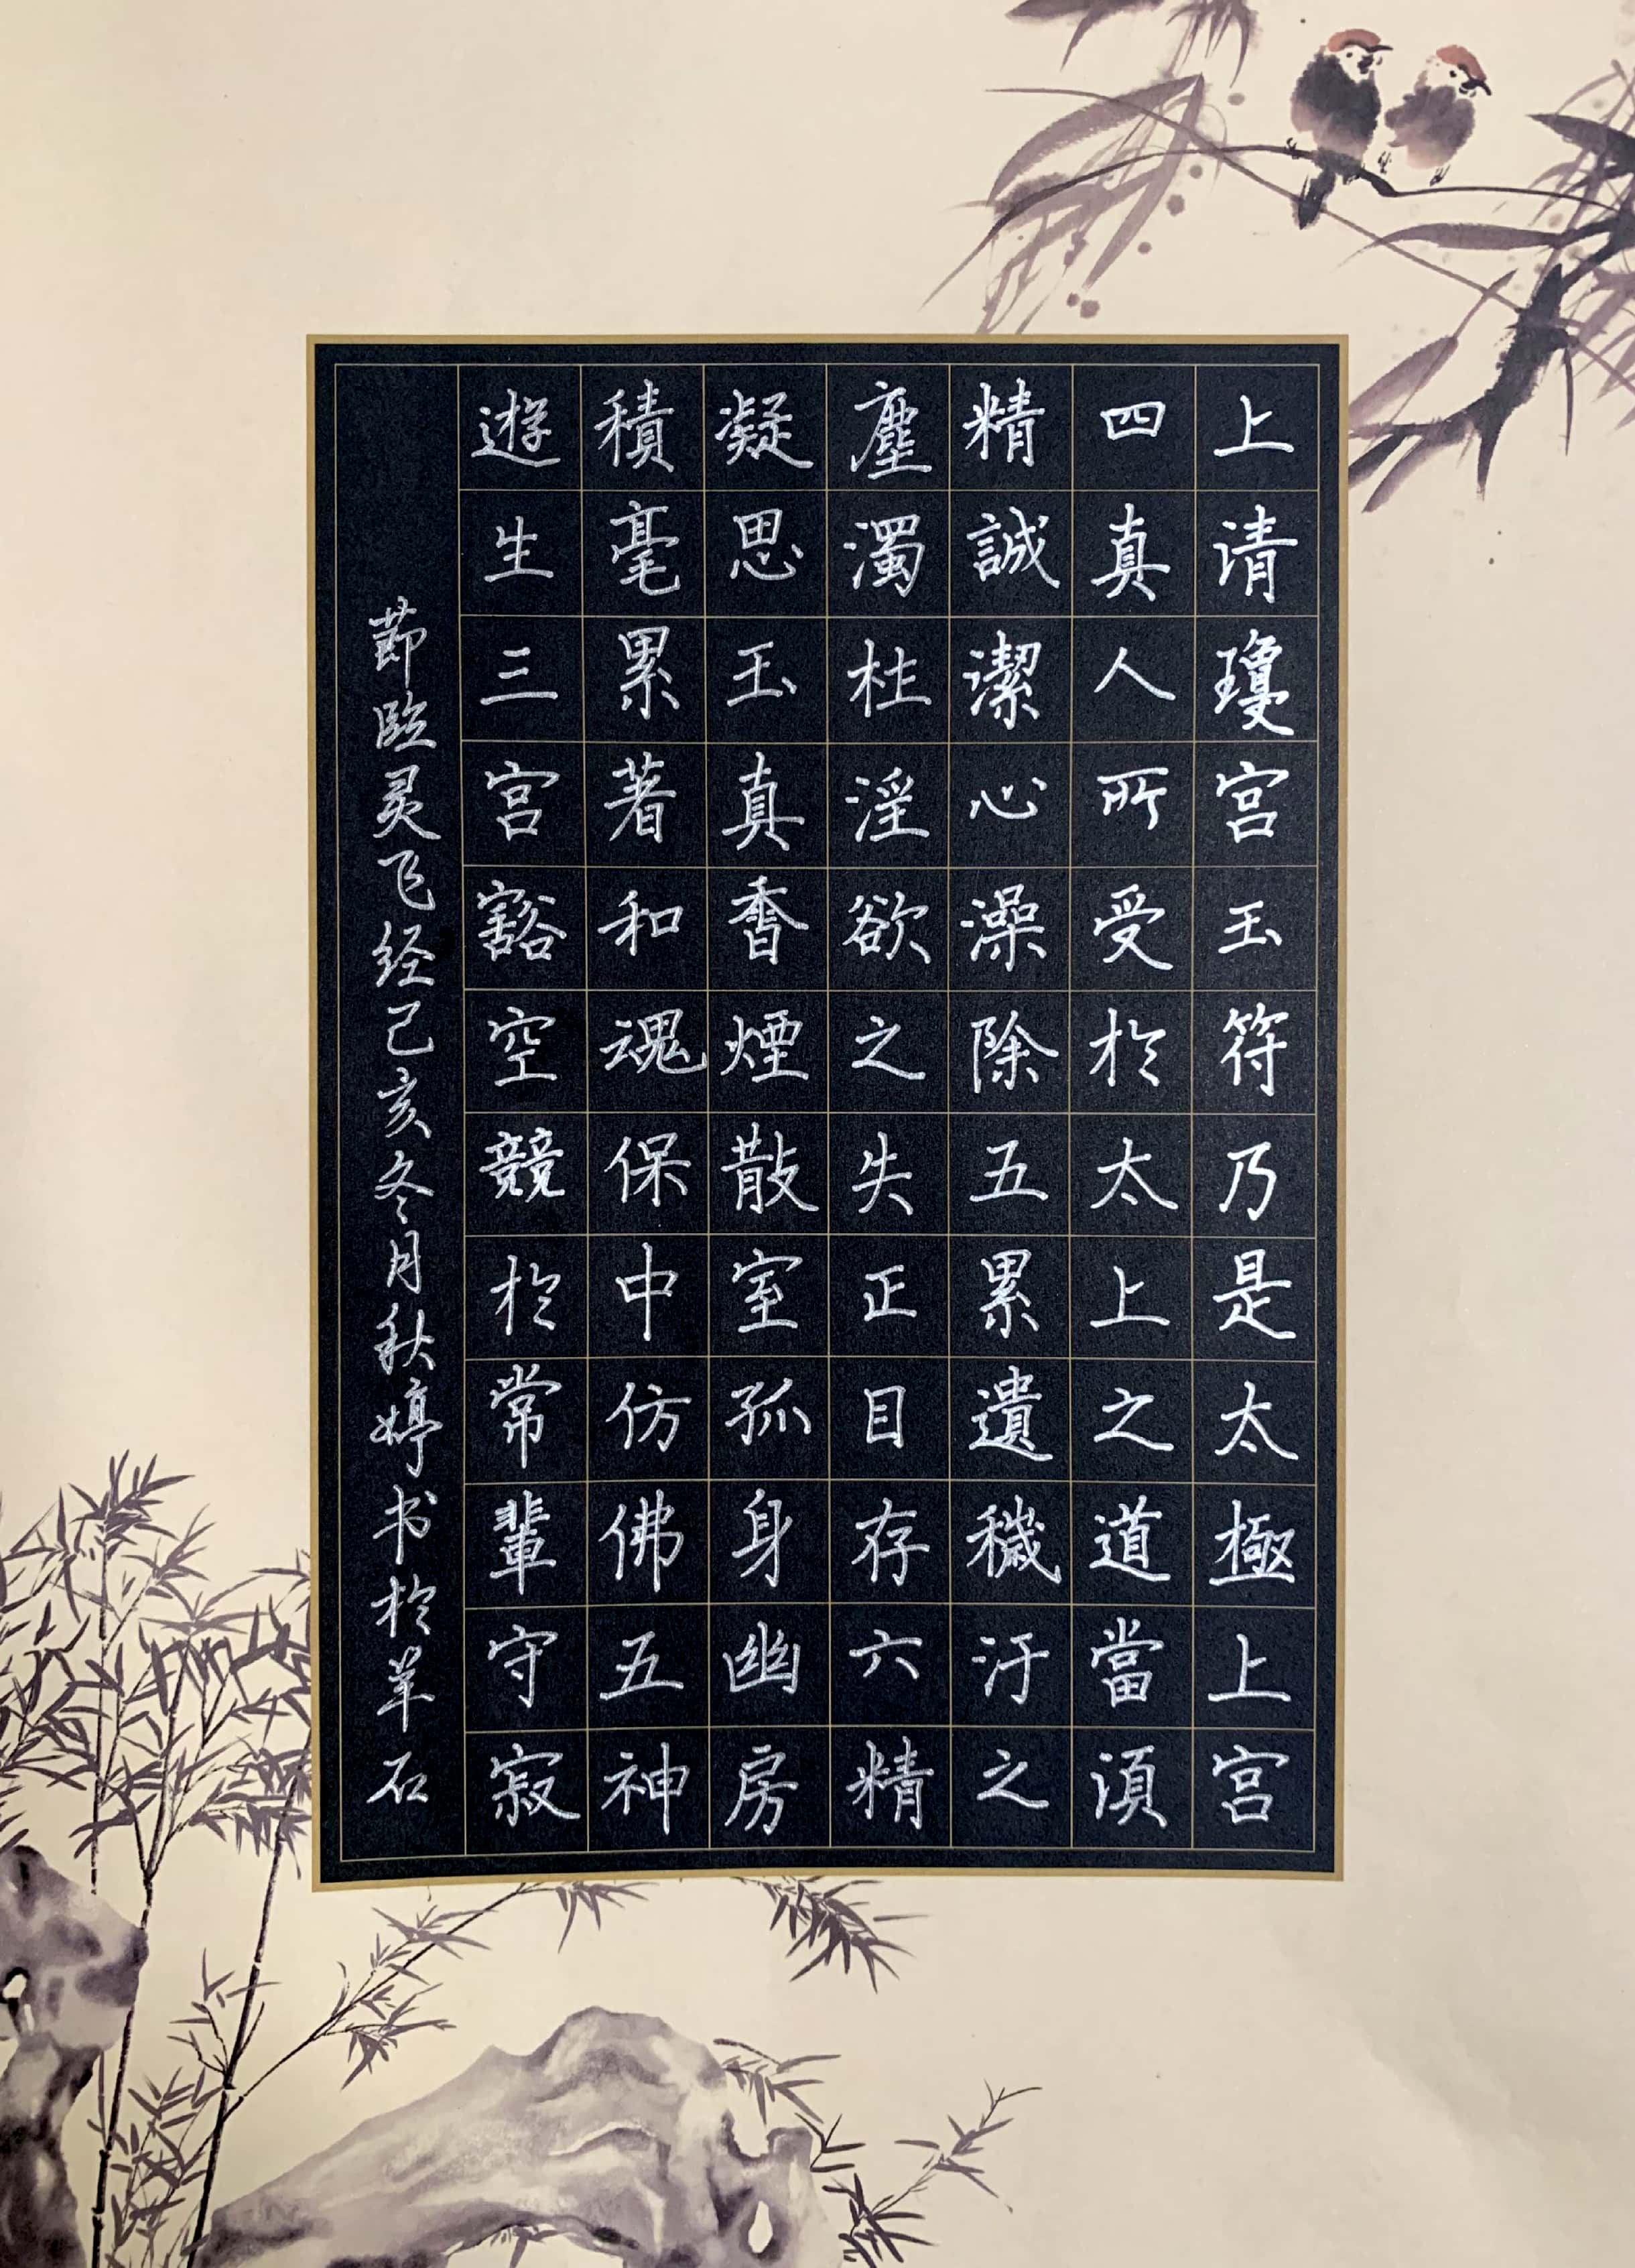 上清瓊宫玉符乃是太極上宫
四真人所受於太上之道當須
精誠潔心澡除五累遺穢汙之
塵濁杜淫欲之失正目存六精
凝思玉真香煙散室孤身幽房
積毫累著和魂保中仿佛五神
遊生三宫豁空競於常輩守寂
節臨灵飞经己亥冬月秋婷书於羊石